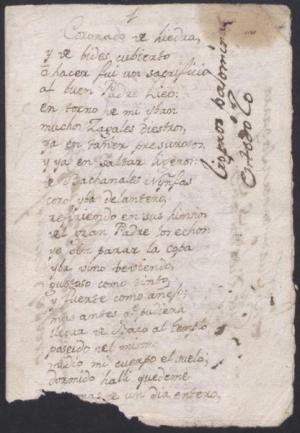 1
Coronado de hiedra,
y de bides cubierto
a hacer fui un sacrificio
al buen Padre Lieo:
en torno de mi yban
muchos Zagales diestros,
ya en tañer presurosos
y ya en saltar ligeros:
de Bachanales Nynfas
coro yba delantero,
repitiendo en sus hinnos
el gran Padre
yo sin parar la copa
yba vino beviendo,
gustoso como tinto
y fuerte como anejo;
mas antes q.e pudiera
llegar de Baco al templo
poseido del mismo
midió mi cuerpo el suelo;
dormido halli quedeme
mas de un dia entero,